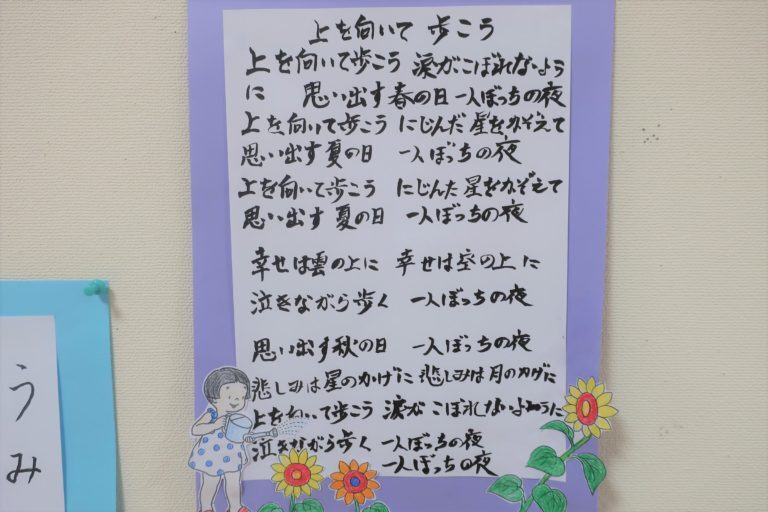 上を向いて 歩こう
上を向いて歩こう 涙がこぼれないよう
に 思い出す春の日 一人ぼっちの夜
上を向いて歩こう にじんだ星をかぞえて
思い出す夏の日 一人ぼっちの夜
上を向いて歩こう にじんだ星をかぞえて
思い出す夏の日 一人ぼっちの夜
幸せは雲の上に 幸せは空の上に
泣きながら歩く 一人ぼっちの夜
思い出す秋の日 一人ぼっちの夜
悲しみは星のかげに 悲しみは月のカゲに
上を向いて歩こう 涙がこぼれないように
泣きながら歩く 一人ぼっちの夜
一人ぼっちの夜
うみ